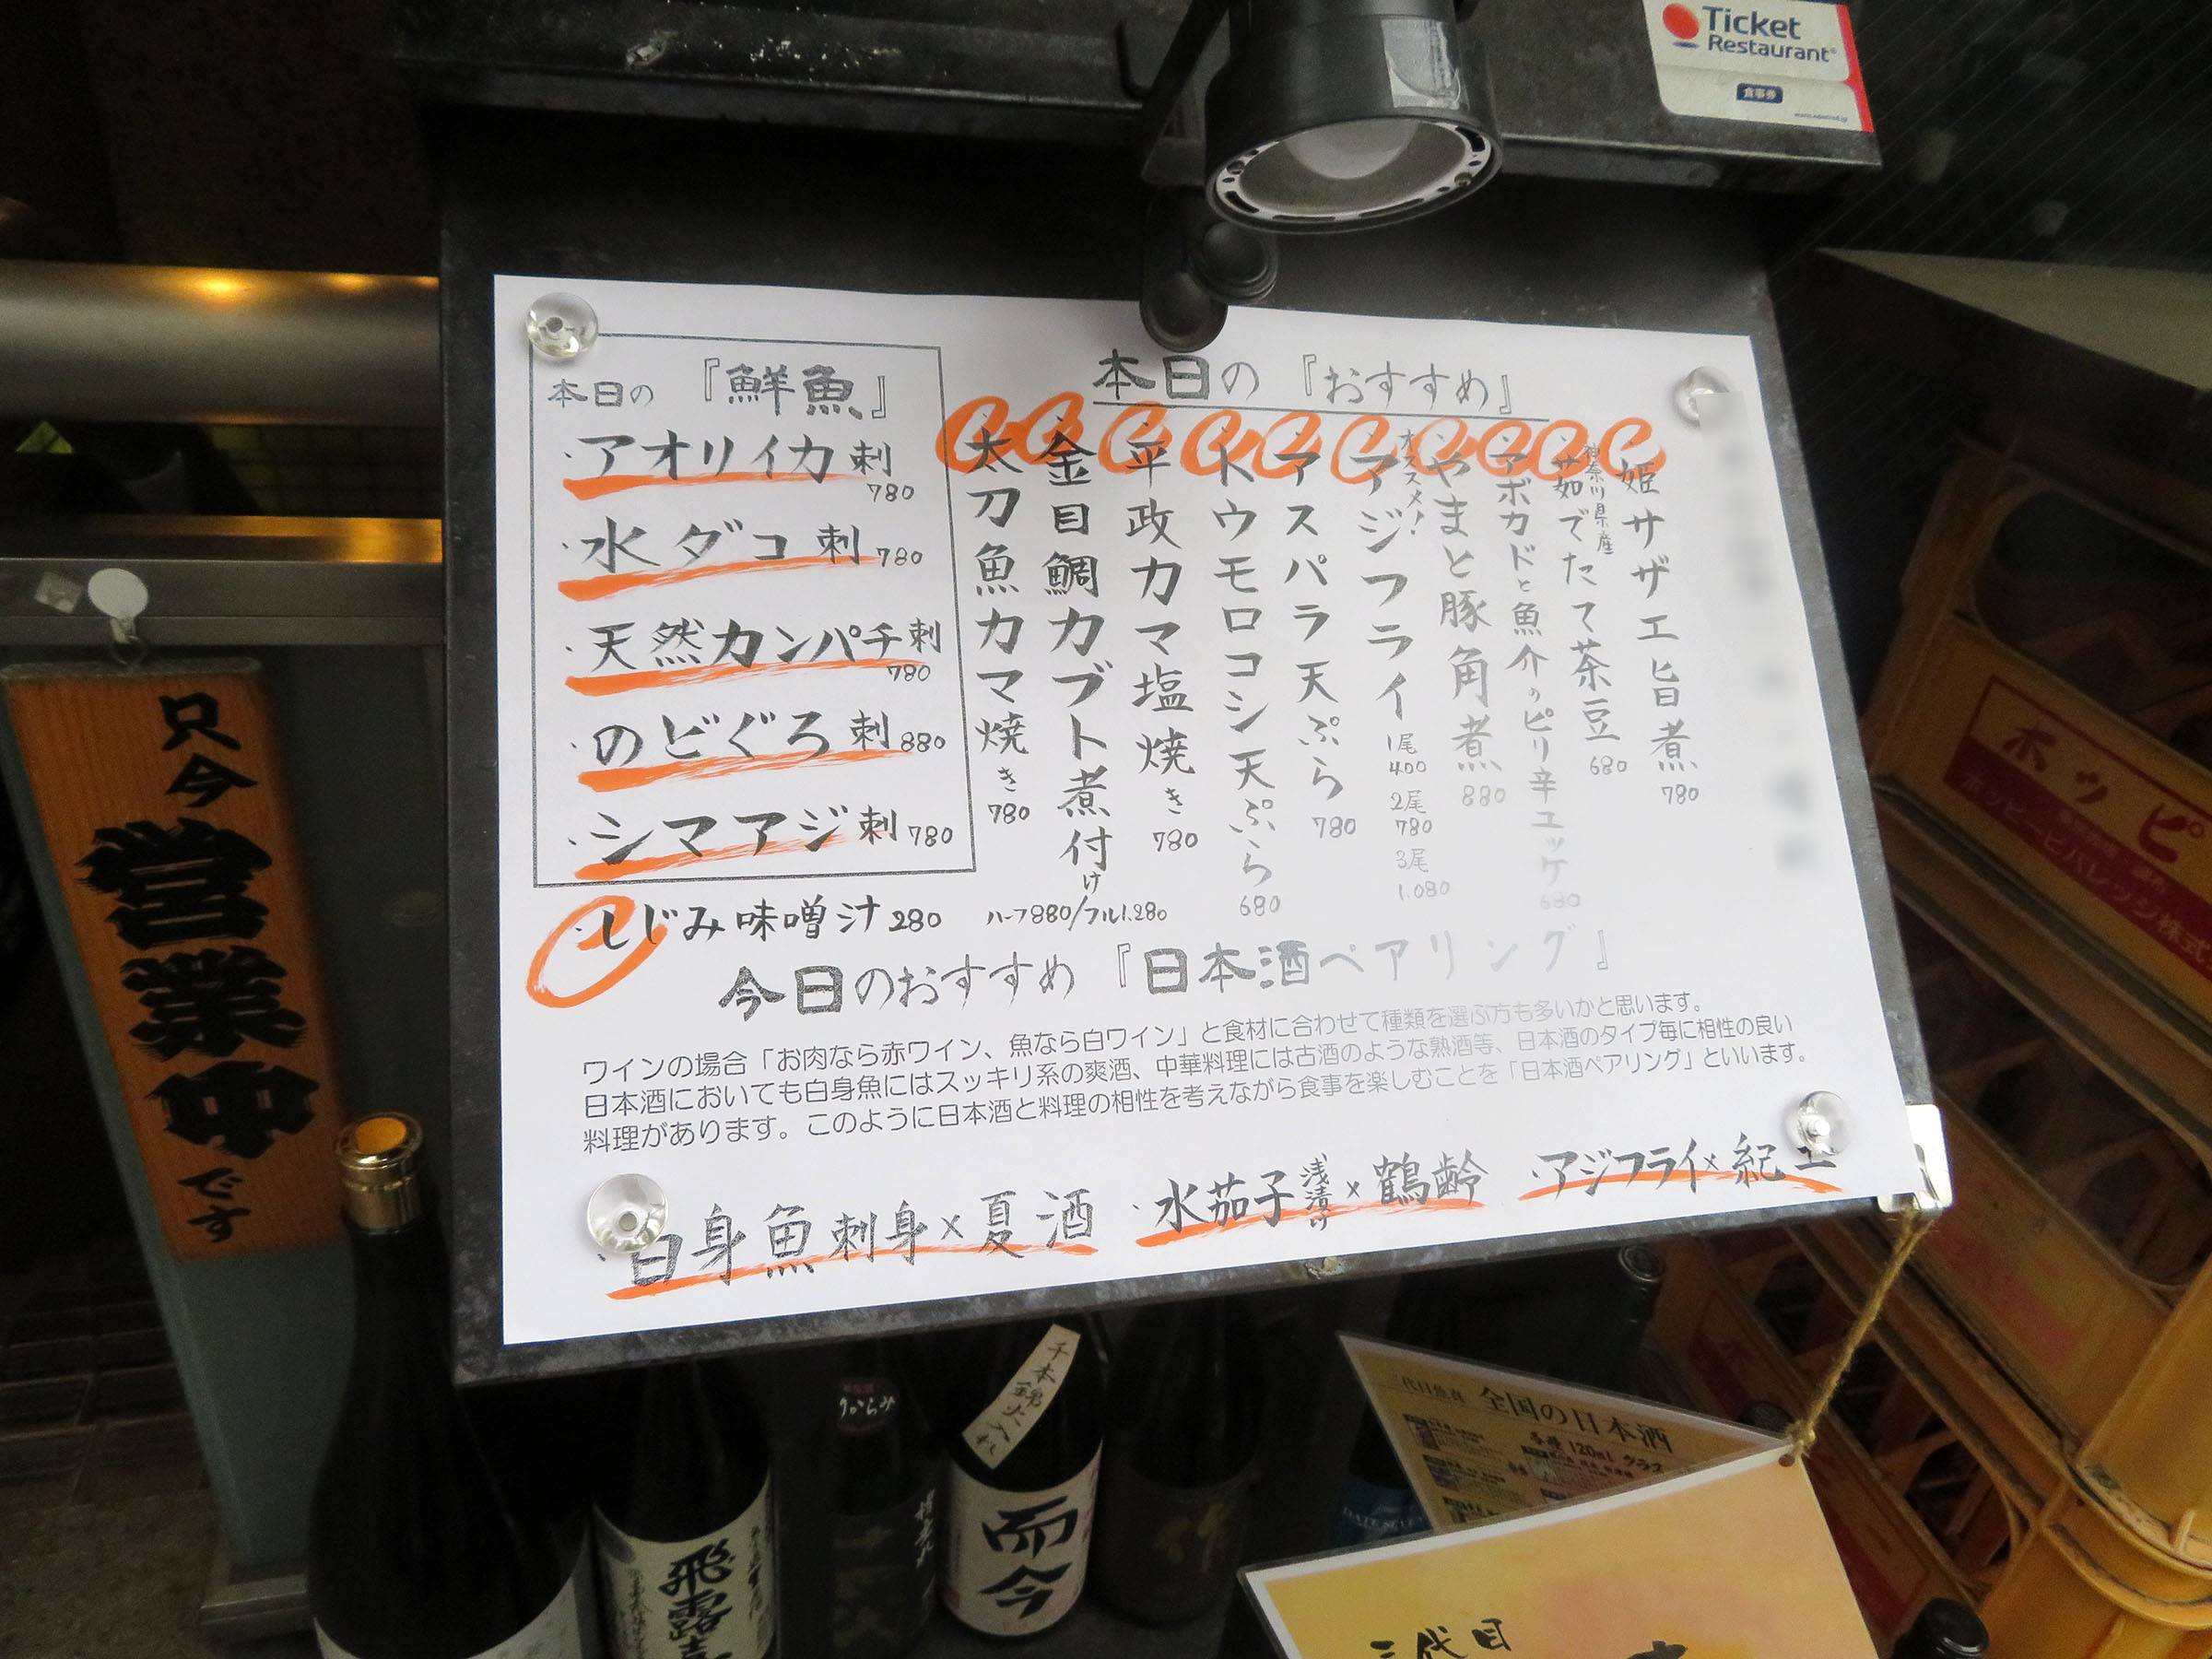 Ticket
Restaurant
食事券
本日の『鮮魚』
・アオリイカ刺
780
・水ダコ刺780
・天然カンパチ刺
780
・のどぐろ刺880
・シマアジ刺780
・しじみ味噌汁280
本日の『おすすめ』
・姫サザエ旨煮780
神奈川県産
・茹でたて茶豆680
・アボカドと魚介のピリ辛ユッケ680
・やまと豚角煮880
オススメ!
・アジフライ
1尾
400
2尾
780
3尾
1.080
・アスパラ天ぷら780
・トウモロコシ天ぷら680
・平政カマ塩焼き780
・金目鯛カブト煮付け
ハーフ880/フル1.280
・太刀魚カマ焼き780
今日のおすすめ『日本酒ペアリング』
ワインの場合「お肉なら赤ワイン、魚なら白ワイン」と食材に合わせて種類を選ぶ方も多いかと思います。
日本酒においても白身魚にはスッキリ系の爽酒、中華料理には古酒のような熟酒等、日本酒のタイプ毎に相性の良い
料理があります。このように日本酒と料理の相性を考えながら食事を楽しむことを「日本酒ペアリング」といいます。
・白身魚刺身×夏酒
・水茄子浅漬け×鶴齢
・アジフライ×紀土
只今
営業中
です
ホッピー
ホッピービバレッジ株式
千本錦火入れ
而今
飛露喜
うからみ
作
全国の日本酒
各種120ml グラス
三代目